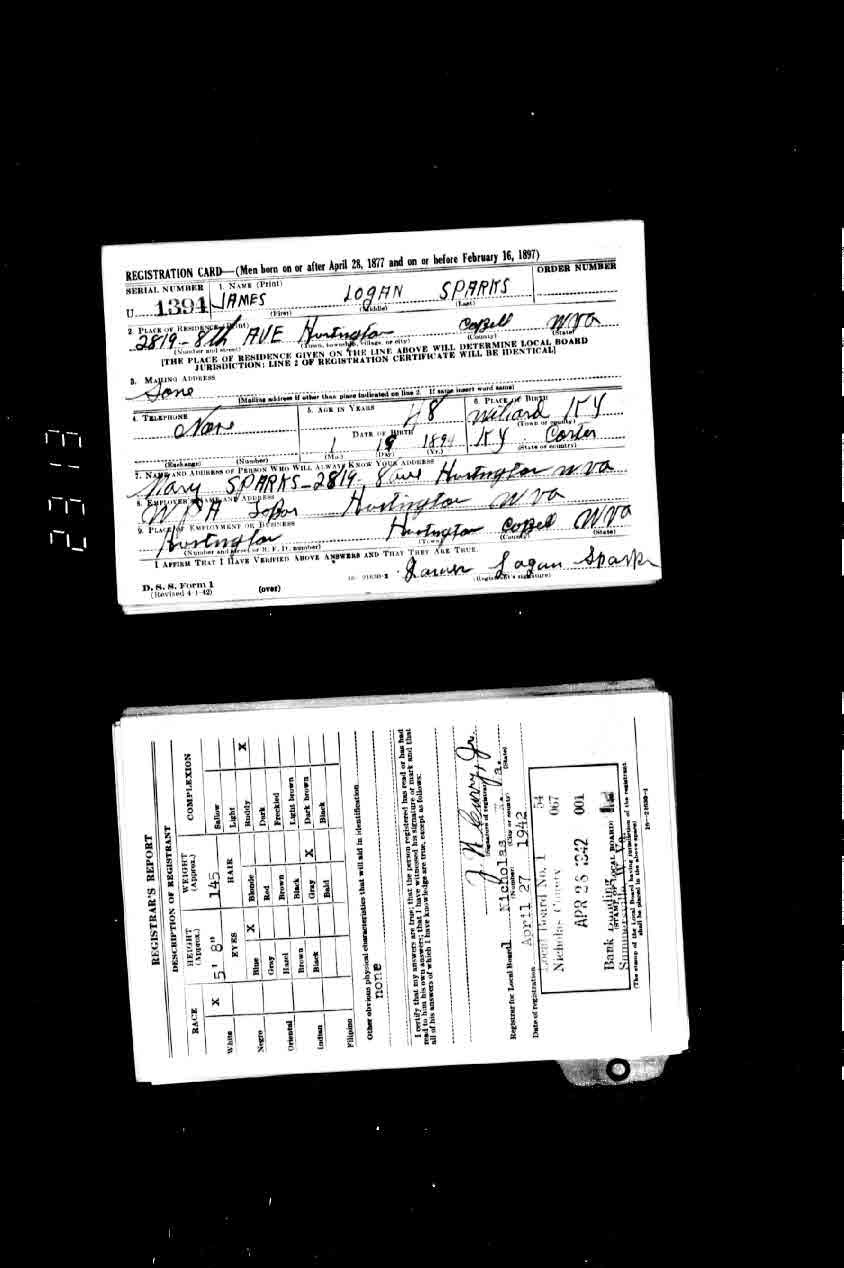 REGISTRATION CARD—(Men born on or after April 28, 1877 and on or before February 16, 1897)
SERIAL NUMBER 1. NAME (Print) ORDER NUMBER
U 1394 JAMES LOGAN SPARKS
(First) (Middle) (Last)
2. PLACE OF RESIDENCE (Print)
2819 - 8th AVE Huntington Cabell W Va
(Number and street) (Town, township, village, or city) (County) (State)
[THE PLACE OF RESIDENCE GIVEN ON THE LINE ABOVE WILL DETERMINE LOCAL BOARD
JURISDICTION; LINE 2 OF REGISTRATION CERTIFICATE WILL BE IDENTICAL]
3. MAILING ADDRESS
Same
[Mailing address if other than place indicated on line 2. If same insert word same]
4. TELEPHONE 5. AGE IN YEARS 6. PLACE OF BIRTH
None 48 Williard KY
DATE OF BIRTH (Town or county)
1 19 1894 KY Carter
(Exchange) (Number) (Mo.) (Day) (Yr.) (State or country)
7. NAME AND ADDRESS OF PERSON WHO WILL ALWAYS KNOW YOUR ADDRESS
Mary SPARKS - 2819 - 8 ave Huntington W Va
8. EMPLOYER'S NAME AND ADDRESS
W P A Labor Huntington W Va
9. PLACE OF EMPLOYMENT OR BUSINESS
Huntington Huntington Cabell W Va
(Number and street or R. F. D. number) (Town) (County) (State)
I AFFIRM THAT I HAVE VERIFIED ABOVE ANSWERS AND THAT THEY ARE TRUE.
James Logan Sparks
D. S. S. Form 1 16—21630-2 (Registrant's signature)
(Revised 4-1-42) (over)
2313
REGISTRAR'S REPORT
DESCRIPTION OF REGISTRANT
RACE HEIGHT (Approx.) WEIGHT (Approx.) COMPLEXION
White X 5' 8" 145 Sallow
EYES HAIR Light
Negro Blue X Blonde Ruddy X
Gray Red Dark
Oriental Hazel Brown Freckled
Brown Black Light brown
Indian Black Gray X Dark brown
Bald Black
Filipino
Other obvious physical characteristics that will aid in identification
none
I certify that my answers are true; that the person registered has read or has had
read to him his own answers; that I have witnessed his signature or mark and that
all of his answers of which I have knowledge are true, except as follows:
(Signature of registrar)
Registrar for Local Board Nicholas W. Va.
(Number) (City or county) (State)
Date of registration April 27 1942
Local Board No. 1 54
Nicholas County 067
APR 28 1942 001
Bank Building
Summersville, W. Va.
(STAMP OF LOCAL BOARD)
(The stamp of the Local Board having jurisdiction of the registrant
shall be placed in the above space)
16—21630-1